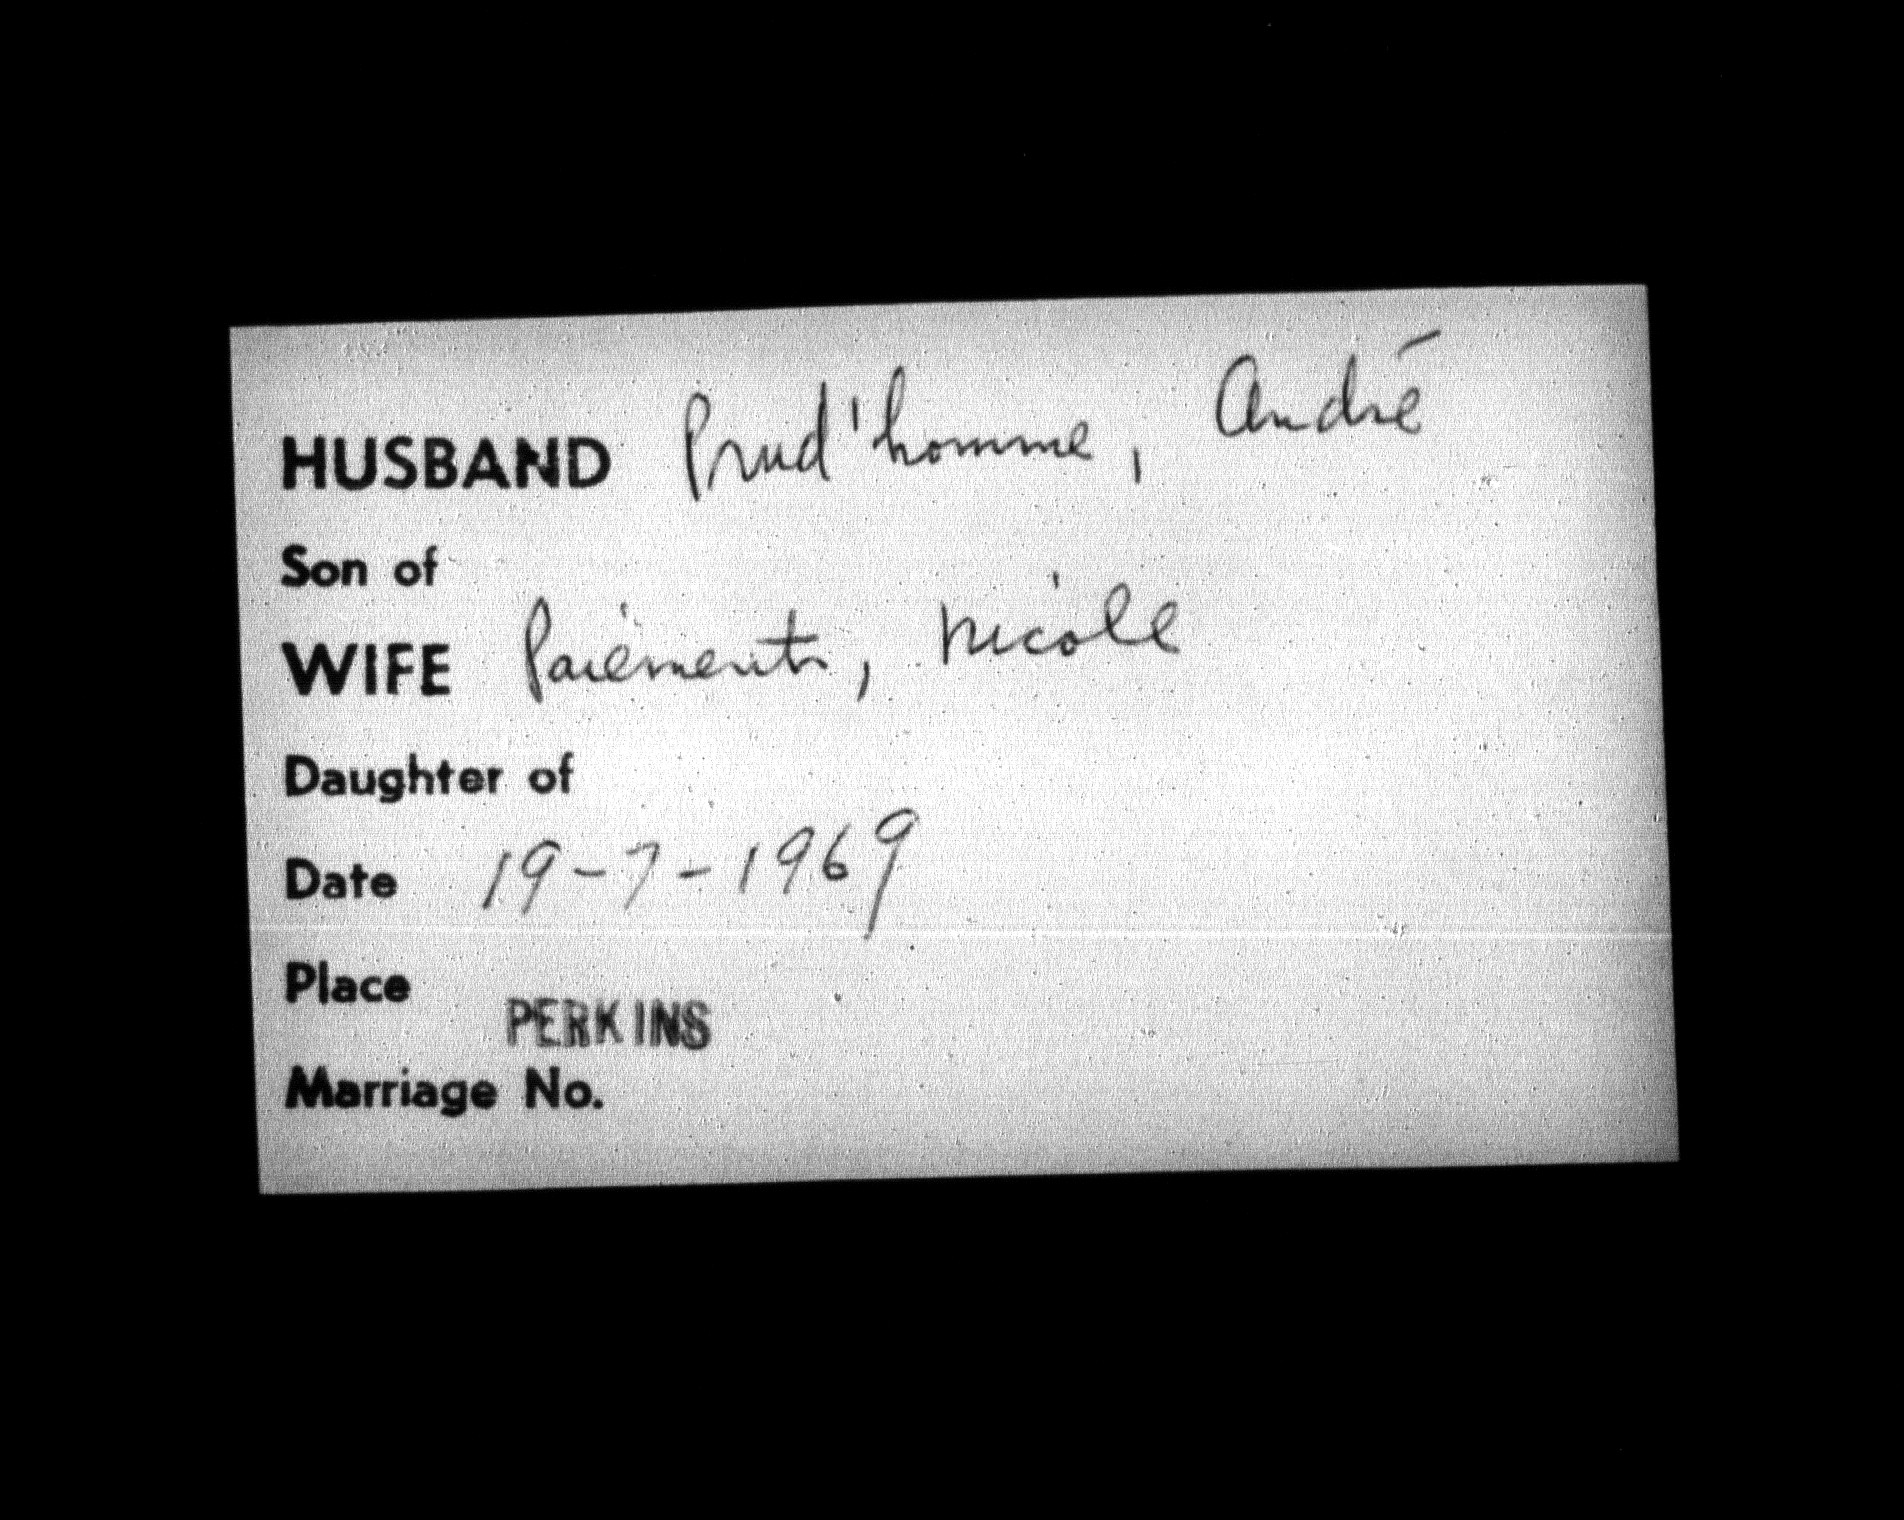 HUSBAND Prud'homme, André
Son of
WIFE Paiement, Nicole
Daughter of
Date 19-7-1969
Place
PERKINS
Marriage No.